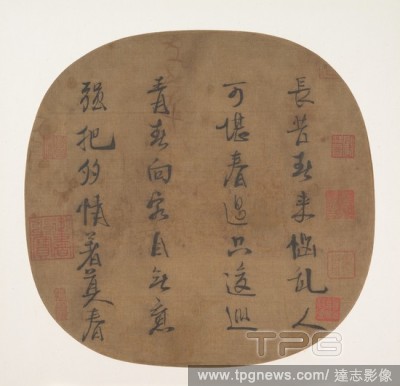 長苦春来惱乱人
可堪春過只逡巡
青春向客自無意
强把多情著莫春
TPG
www.tpgnews.com/達志影像